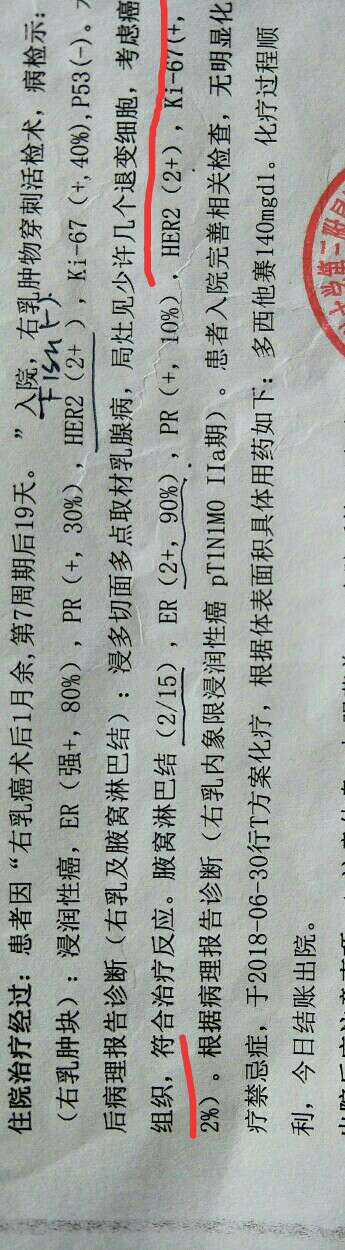 住院治疗经过：患者因“右乳癌术后1月余,第7周期后19天。”入院，右乳肿物穿刺活检术，病检示：
Fish（-）
（右乳肿块）：浸润性癌，ER（强+，80%），PR（+，30%），HER2（2+），Ki-67（+,40%),P53(-)。
后病理报告诊断（右乳及腋窝淋巴结）：浸多切面多点取材乳腺病，局灶见少许几个退变细胞，考虑癌
组织，符合治疗反应。腋窝淋巴结（2/15），ER（2+，90%），PR（+，10%），HER2（2+），Ki-67(+，
2%）。根据病理报告诊断（右乳内象限浸润性癌 pT1N1M0 IIa期）。患者入院完善相关检查，无明显化
疗禁忌症，于2018-06-30行T方案化疗，根据体表面积具体用药如下：多西他赛140mgd1。化疗过程顺
利，今日结账出院。